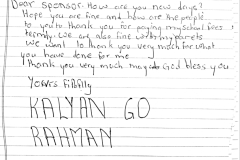 Dear sponsor. How are you now days?
Hope you are fine and how are the people
to you th thank you for paying my school fees
termly. We are also fine with my parets
We want to thank you very much for what
you have done for me
Thank you very much may God bless you
Yours
KALYAN GO
RAHMAN